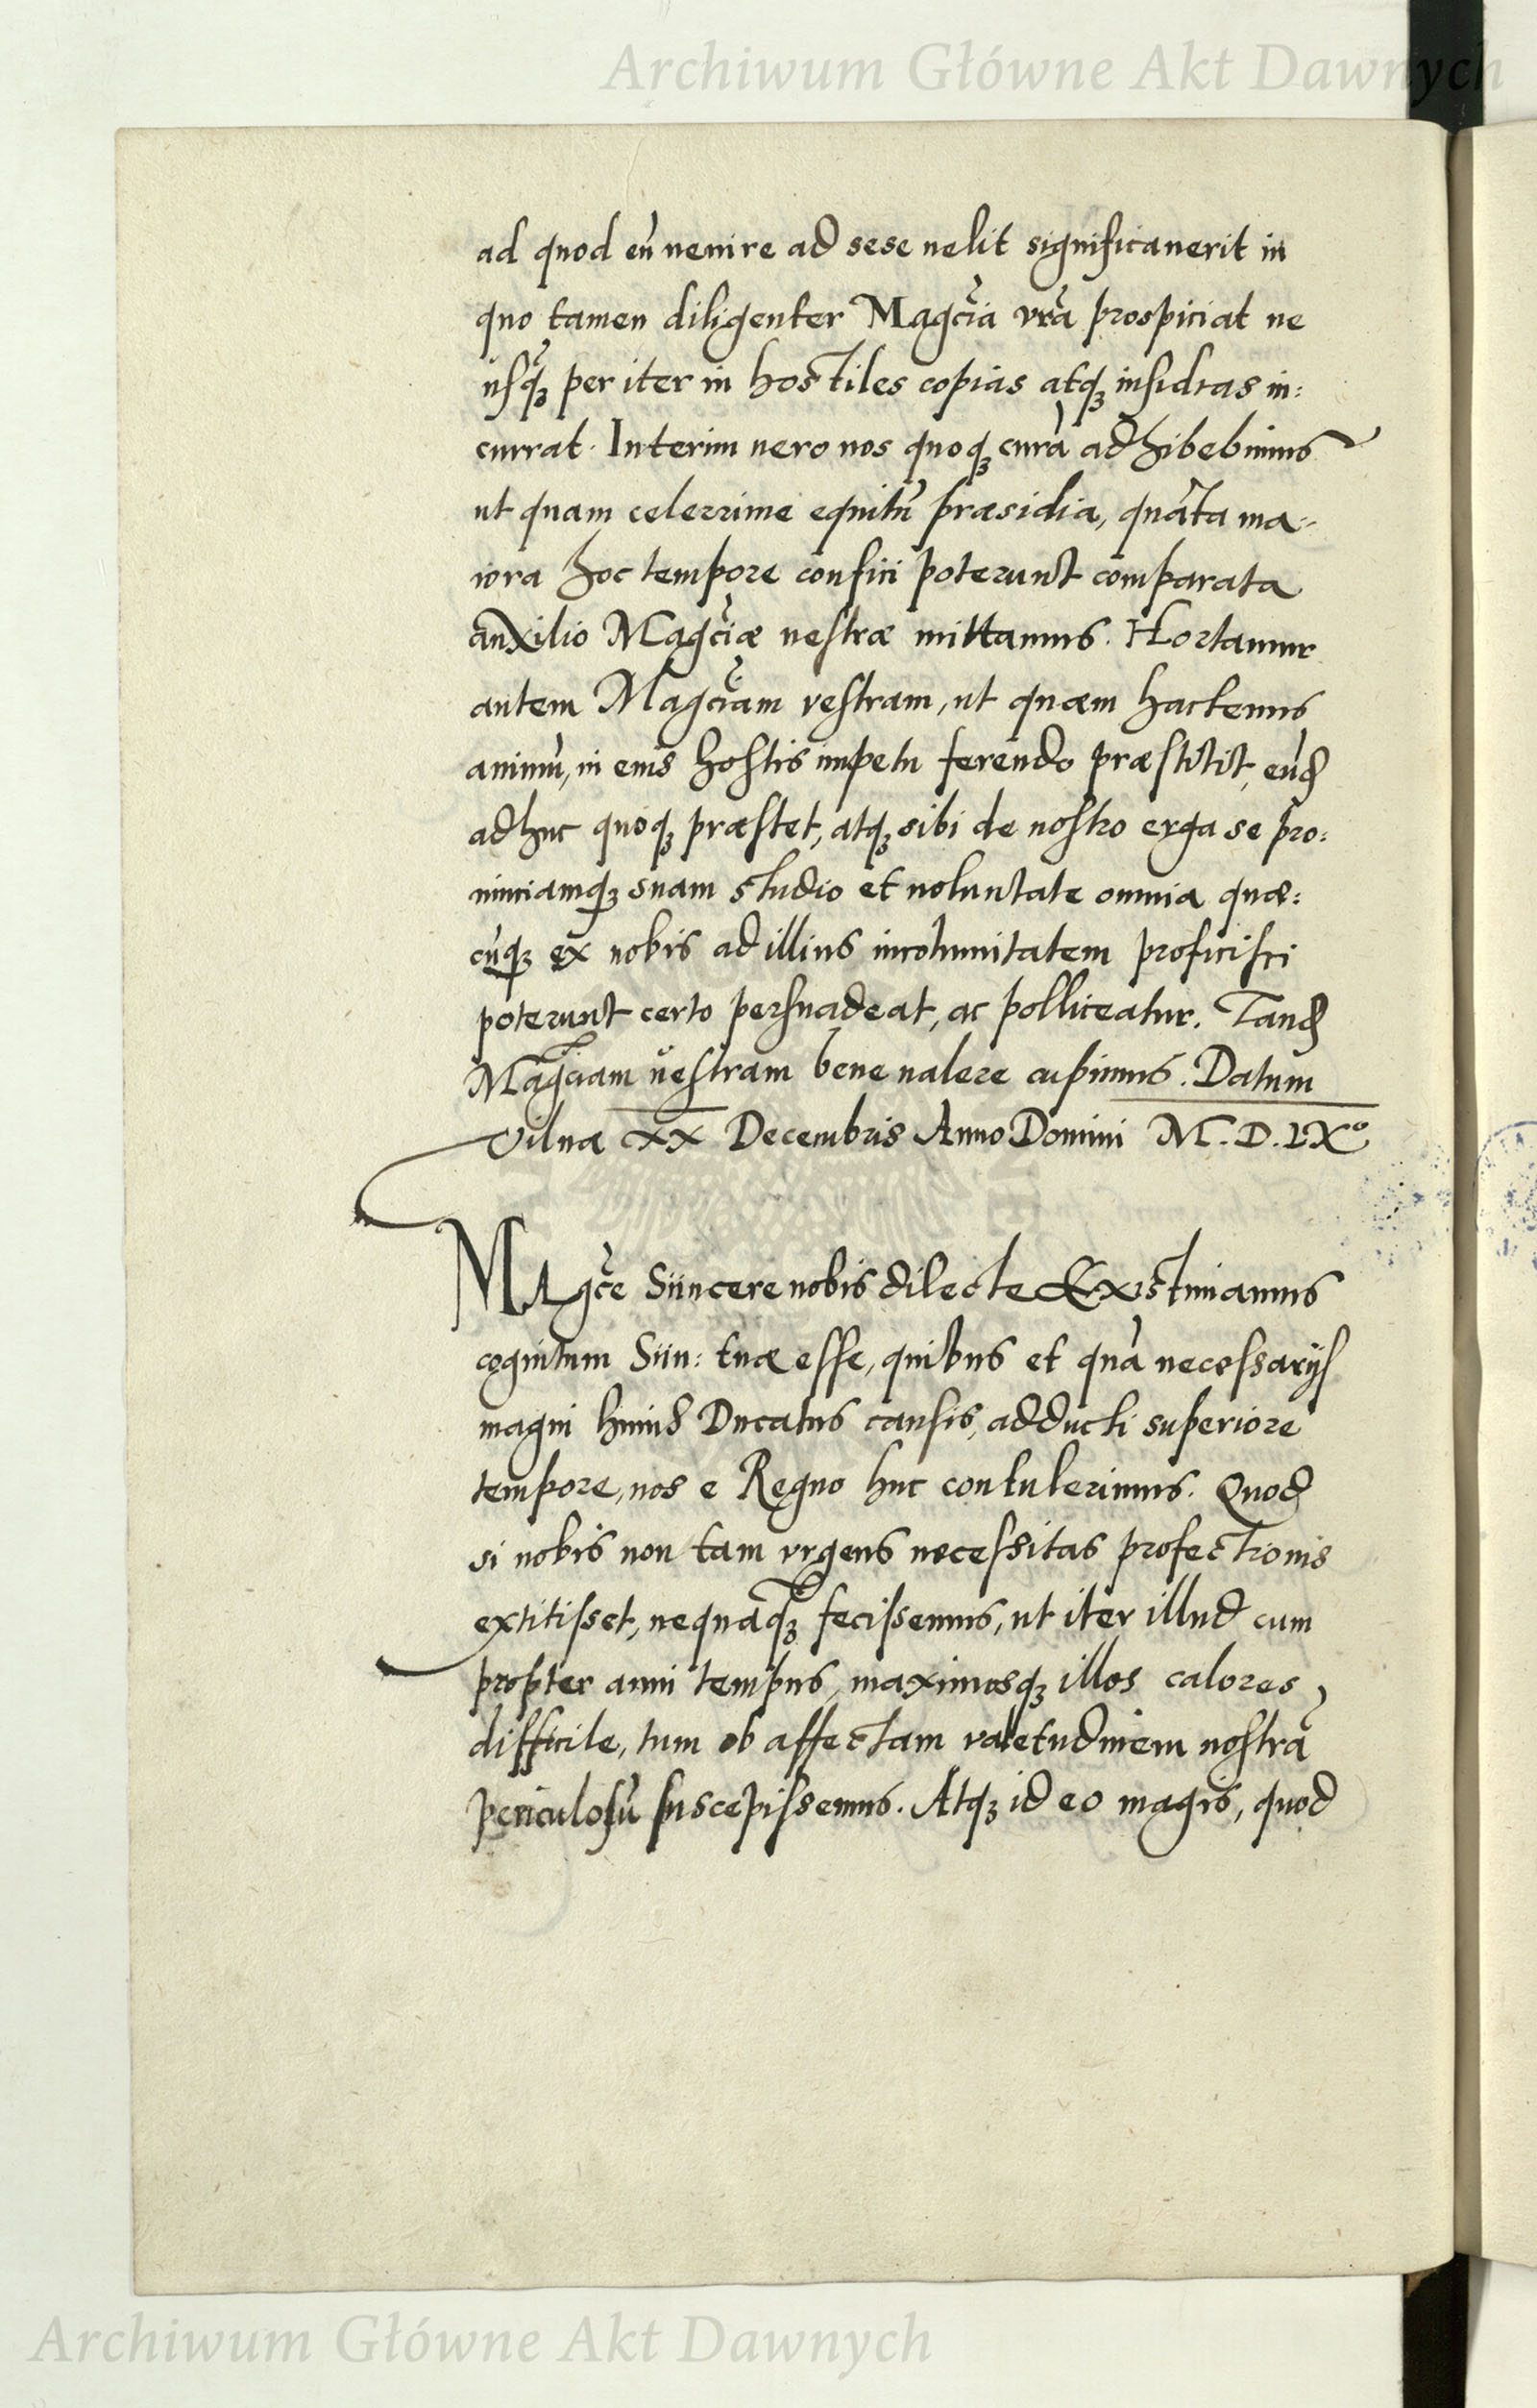 Archiwum Główne Akt Dawnych
ad quod eũ uenire ad sese uelit significauerit in
quo tamen diligenter Magc̃ia vrã prospiciat ne
usq̃ȝ per iter in hostiles copias atqȝ insidias in:
currat. Interim uero nos quoqȝ curã adhibebimus
ut quam celerrime equitũ præsidia, quãta ma:
iora hoc tempore confici poterunt comparata
auxilio Magc̃iæ uestræ mittamus. Hortamur
autem Magc̃iam vestram, ut quam hactenus
animũ, in eius hostis impetu ferendo præstitit, eũd
adhuc quoqȝ præstet, atqȝ sibi de nostro erga se pro:
uinciamqȝ suam studio et uoluntate omnia quæ:
cũqȝ ex nobis ad illius incolumitatem proficisci
poterunt certo persuadeat, ac polliceatur. Tand
Magc̃iam uestram bene ualere cupimus. Datum
Vilnæ XX Decembris Anno Domini M.D.LXº
Magc̃e Siincere nobis dilecte Existimamus
cognitum Siin: tuæ esse, quibus et quã necessarijs
magni huius Ducatus causis, adducti superiore
tempore, nos e Regno huc contulerimus. Quod
si nobis non tam vrgens necessitas profectionis
extitisset, nequãq̃ȝ fecissemus, ut iter illud cum
propter anni tempus, maximosqȝ illos calores
difficile, tum ob affectam valetudinem nostrã
periculosũ suscepissemus. Atqȝ id eo magis, quod
Archiwum Główne Akt Dawnych